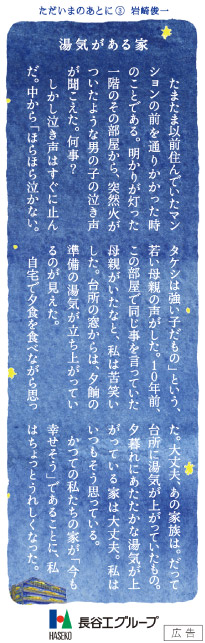 ただいまのあとに③ 岩崎俊一
湯気がある家
たまたま以前住んでいたマン
ションの前を通りかかった時
のことである。明かりが灯った
一階のその部屋から、突然火が
ついたような男の子の泣き声
が聞こえた。何事?
しかし泣き声はすぐに止ん
だ。中から「ほらほら泣かない。
タケシは強い子だもの」という、
若い母親の声がした。10年前、
この部屋で同じ事を言っていた
母親がいたなと、私は苦笑い
した。台所の窓からは、夕餉の
準備の湯気が立ち上がってい
るのが見えた。
自宅で夕食を食べながら思っ
た。大丈夫、あの家族は。だって
台所に湯気が上がっていたもの。
夕暮れにあたたかな湯気が上
がっている家は大丈夫。私は
いつもそう思っている。
かつての私たちの家が「今も
幸せそう」であることに、私
はちょっとうれしくなった。
HASEKO
長谷工グループ
広告